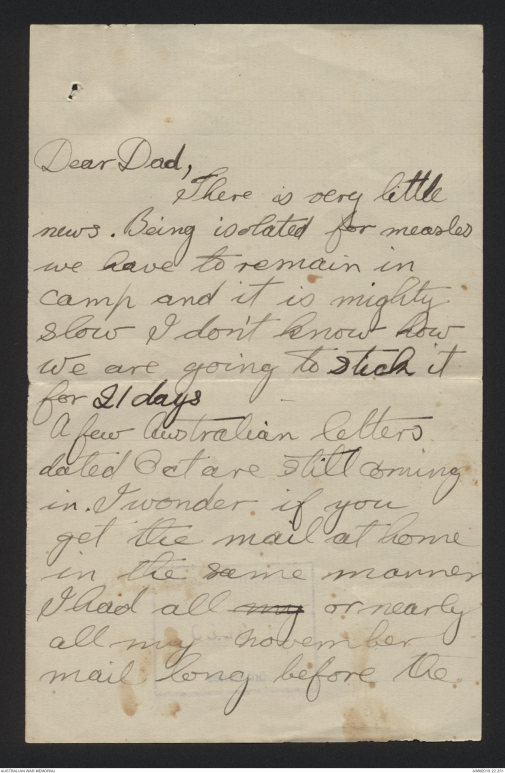 Dear Dad,
There is very little
news. Being isolated for measles
we have to remain in
camp and it is mighty
slow I don't know how
we are going to stick it
for 21 days
A few Australian letters
dated Oct are still coming
in. I wonder if you
get the mail at home
in the same manner
I had all my or nearly
all my november
mail long before the
AUSTRALIAN WAR MEMORIAL